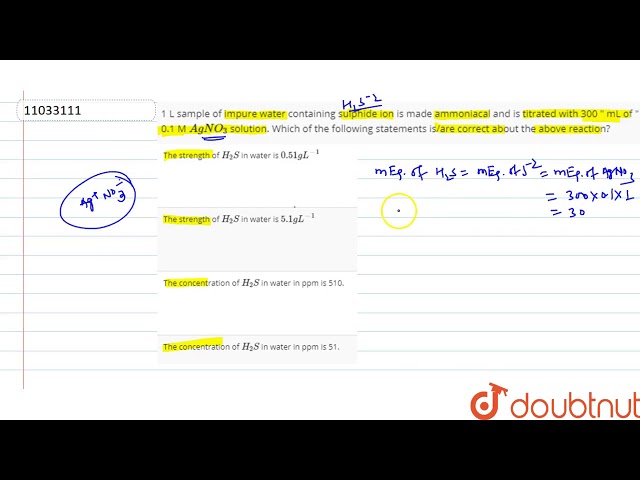 11033111
H₂S⁻²
1 L sample of impure water containing sulphide ion is made ammoniacal and is titrated with 300 " mL of "
0.1 M AgNO₃ solution. Which of the following statements is/are correct about the above reaction?
The strength of H₂S in water is 0.51gL⁻¹
mEq. of H₂S = mEq. of S⁻² = mEq. of AgNO₃
= 300 x 0.1 x 1
= 30
Ag⁺ NO₃⁻
The strength of H₂S in water is 5.1gL⁻¹
The concentration of H₂S in water in ppm is 510.
The concentration of H₂S in water in ppm is 51.
doubtnut